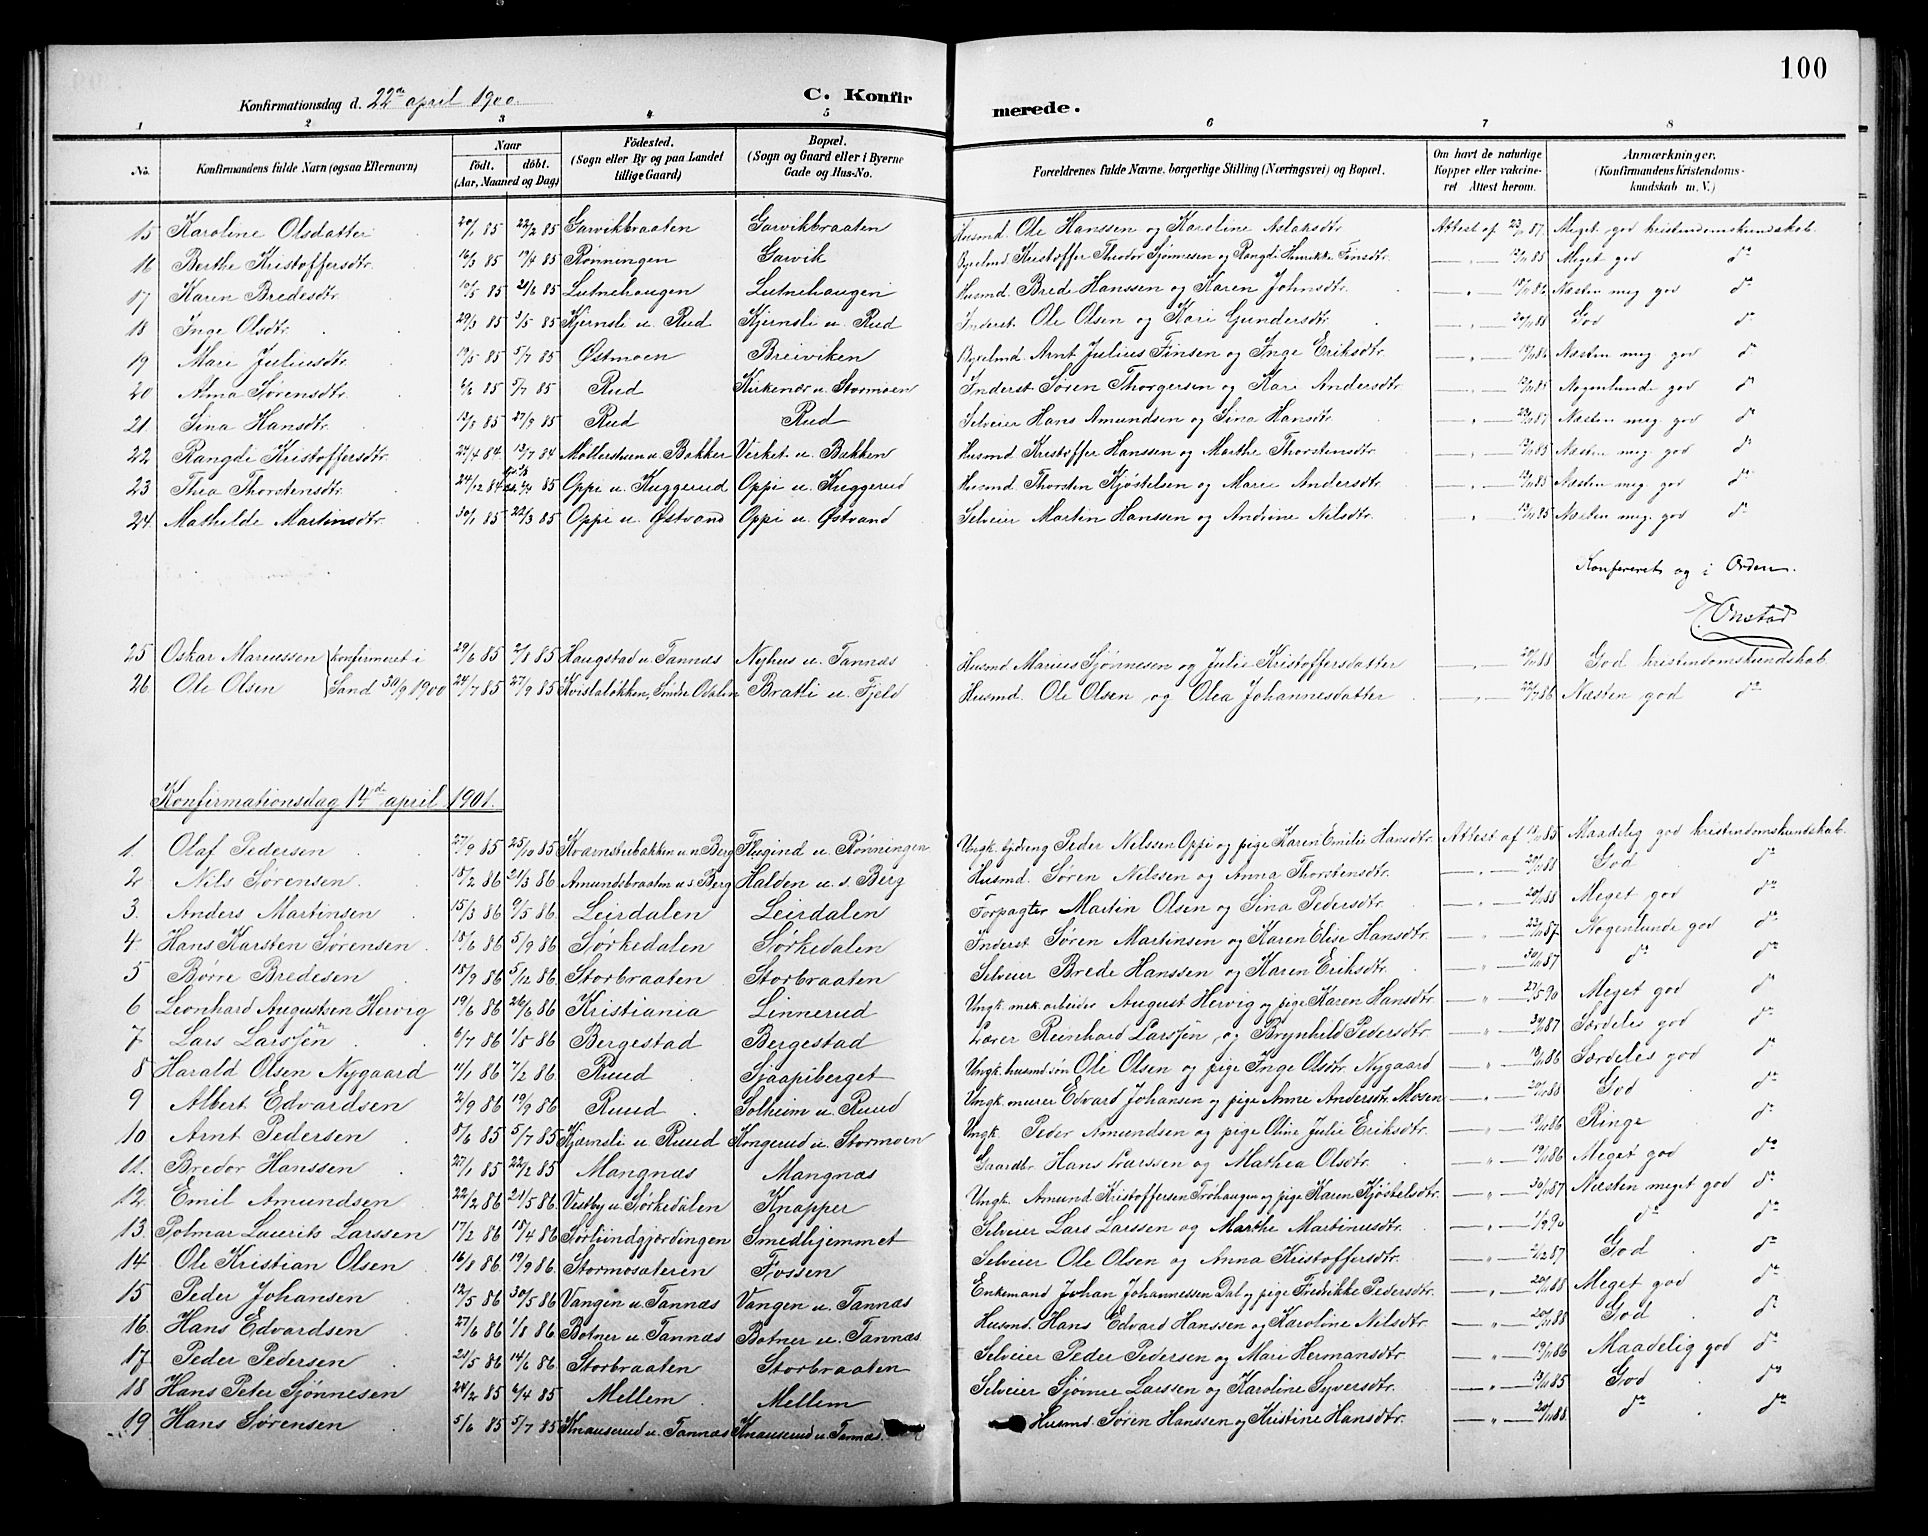 100
Konfirmationsdag d. 22de april 1900. C. Konfirmerede.
1 2 3 4 5 6 7 8
No. Konfirmandens fulde Navn (ogsaa Efternavn) Naar født. døbt. (Aar, Maaned og Dag) Fødested. (Sogn eller By og paa Landet tillige Gaard) Bopæl. (Sogn og Gaard eller i Byerne Gade og Hus-No. Forældrenes fulde Navne, borgerlige Stilling (Næringsvei) og Bopæl. Om havt de naturlige Kopper eller vakcineret Attest herom. Anmærkninger. (Konfirmandens Kristendomskundskab m. V.)
15 Karoline Olsdatter 20/1 85 22/2 85 Garvikbraaten Garvikbraaten Husmd. Ole Hanssen og Karoline Aslaksdtr. Attest af 87. Meget god kristendomskundskab.
16 Berthe Kristoffersdtr. 16/3 85 19/4 85 Rønningen Garvik Kristoffer Theodor Sjønnesen og Rangdi Henrikke Finsdtr. 85 Meget god do
17 Karen Bredesdtr. 10/5 85 21/6 85 Lutnehaugen Lutnehaugen Husmd. Brede Hanssen og Karen Johnsdtr. Næsten meg god do
18 Inge Olsdtr. 29/3 85 3/5 85 Kjernsli u. Rud Kjernsli u. Rud Inderst. Ole Olsen og Kari Gundersdtr. 88 God do
19 Mari Juliusdtr. 19/5 85 5/7 85 Østmoen Breiviken Arnt Julius Finsen og Inge Eriksdtr. 86 Næsten meg god do
20 Alma Sørensdtr. 6/6 85 5/7 85 Rud Kirkenær u. Stormoen Inderst Søren Thorgersen og Kari Andersdtr. 85 Nogenlunde god do
21 Sina Hansdtr. 13/8 85 27/9 85 Rud Rud Selveier Hans Amundsen og Sina Hansdtr. 87 Næsten meg. god do
22 Rangdi Kristoffersdtr. 24/4 84. 13/7 84 Møllerstuen u Bakker Verket u. Bakken Husmd Kristoffer Hanssen og Marthe Thorstensdtr. 85 Næsten meg. god do
23 Thea Thorstensdtr. 24/12 84 85 Oppi u. Kuggerud Oppi u. Kuggerud Husmd. Thorsten Kjøstelsen og Marie Andersdtr. 85 Næsten meg. god do
24. Mathilde Martinsdtr. 30/1 85 22/3 85 Oppi u. Østvand Oppi u. Østvand Selveier Martin Hanssen og Andrine Nilsdtr. 85 Næsten meg. god do
Konfereret og i Orden.
E. Onstad
25 Oskar Mariussen konfirmeret i 29/6 85 2/8 85 Haugstad u. Tannæs Nyhus u. Tannæs Husmd. Marius Sjønnesen og Julie Kristoffersdatter 88 God kristendomskundskab
26. Ole Olsen Sand 30/9 1900 24/7 85 27/9 85 Kvistaløkken, Søndre Odalen Bratli u. Fjeld Husmd. Ole Olsen og Olea Johannesdatter 86 Næsten god do
Konfirmationsdag 14de april 1901.
1. Olaf Pedersen 27/9 85 25/10 85 Kvarnstubakken u. n Berg Flugind u. Rønningen Ungk. Peder Nilssen Oppi og pige Karen Emilie Hansdtr. Attest af 85 Maadelig god kristendomskundskab.
2 Nils Sørensen 18/2 86 21/3 86 Amundsbraaten u. s Berg Halden u. s. Berg Husmd. Søren Nilssen og Anna Thorstensdtr. 88 God do
3. Anders Martinsen 15/3 86 9/5 86. Leirdalen Leirdalen Forpagter Martin Olsen og Sina Pedersdtr. 88 Meget god do
4. Hans Karsten Sørensen 18/6 86 5/9 86. Sørkedalen Sørkedalen Inderst Søren Martinsen og Karen Elise Hansdtr. 87 Nogenlunde god do
5 Børre Bredesen 18/9 86 5/12 86. Storbraaten Storbraaten Selveier Brede Hanssen og Karen Eriksdtr. 87 do do
6 Leonhard Augustsen Hervig 19/6 86 26/6 86 Kristiania Linnerud Ungk. mek. arbeider August Hervig og pige Karen Hansdtr. 27/5 90 Meget god do
7 Lars Larssøn 6/7 86 1/8 86 Bergestad Bergestad Lærer Reinhard Larssøn og Brynhild Pedersdtr. 87 Særdeles god do
8 Harald Olsen Nygaard 11/1 86 7/2 86 Ruud Sjaapiberget Ungk. husmd. søn Ole Olsen og pige Inge Olsdtr. Nygaard 86 Særdeles god do
9 Albert Edvardsen 2/9 86 19/9 86 Ruud Solheim u. Ruud Ungk. murer Edvard Johansen og pige Anne Andersdtr. Mosen 88 God do
10 Arnt Pedersen 8/6 85 5/7 85 Kjernsli u. Ruud Kongerud u. Stormoen Ungk. Peder Amundsen og pige Oline Julie Eriksdtr. 86 Ringe do
11. Bredor Hanssen 27/1 85 22/2 85 Mangnæs Mangnæs Gaardbr. Hans Larssen og Mathea Olsdtr. 86 Meget god do
12. Emil Amundsen 22/2 86 21/5 86 Vestby u Sørkedalen Knapper Ungk. Amund Kristoffersen Trohaugen og pige Karen Kjøstelsdtr. 87 Næsten meget god do
13. Hotmar Laurits Larssen 17/2 86 18/4 86 Sørlundgjærdingen Smedhjemmet Selveier Lars Larssen og Marthe Martinusdtr. 90 do do
14 Ole Kristian Olsen 16/8 86. 19/9 86. Stormosæteren Fossen Selveier Ole Olsen og Anna Kristoffersdtr. 87 God do
15 Peder Johansen 12/5 86 30/5 86 Vangen u. Tannæs Vangen u. Tannæs Enkemand Johan Johannessen Dal og pige Fredrikke Pedersdtr. 88 Meget god do
16. Hans Edvardsen 27/6 86 1/8 86 Botner u. Tannæs Botner u. Tannæs Husmd. Hans Edvard Hanssen og Karoline Nilsdtr. 88 God do
17 Peder Pedersen 21/5 86 14/6 86. Storbraaten Storbraaten Selveier Peder Pedersen og Mari Hermansdtr. 86 Maadelig god do
18 Hans Peter Sjønnesen 24/2 85 6/4 85 Mellem Mellem Selveier Sjønne Larssen og Karoline Syversdtr. 85 God do
19 Hans Sørensen 5/6 85 5/7 85 Knauserud u. Tannæs Knauserud u. Tannæs. Husmd. Søren Hanssen og Kristine Hansdtr. 88. do do